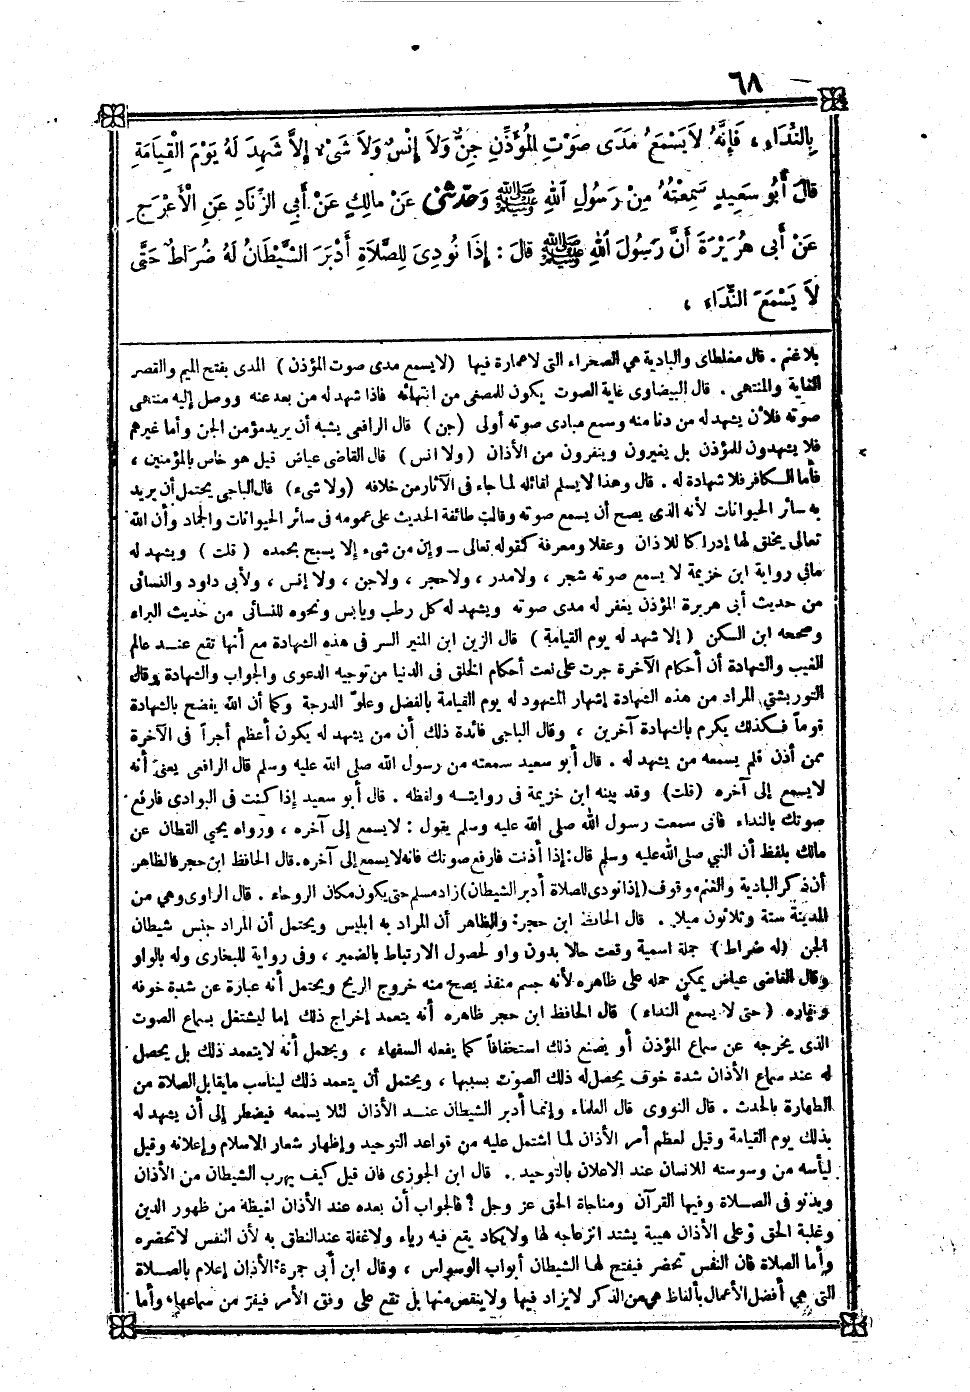 — ٦٨
بِالنِّدَاءِ ، فَإِنَّهُ لاَ يَسْمَعُ مَدَى صَوْتِ الْمُؤَذِّنِ جِنٌّ وَلاَ إِنْسٌ وَلاَ شَىْءٌ إِلاَّ شَهِدَ لَهُ يَوْمَ الْقِيَامَةِ
قَالَ أَبُو سَعِيدٍ سَمِعْتُهُ مِنْ رَسُولِ اللهِ ﷺ وَحَدَّثَنِى عَنْ مَالِكٍ عَنْ أَبِى الزِّنَادِ عَنِ الْأَعْرَجِ
عَنْ أَبِى هُرَيْرَةَ أَنَّ رَسُولَ اللهِ ﷺ قَالَ : إِذَا نُودِىَ لِلصَّلاَةِ أَدْبَرَ الشَّيْطَانُ لَهُ ضُرَاطٌ حَتَّى
لاَ يَسْمَعَ النِّدَاءَ ،
بلا غنم . قال مغلطاى والبادية هي الصحراء التى لا عمارة فيها ( لا يسمع مدى صوت المؤذن ) المدى بفتح الميم والقصر
الغاية والمنتهى . قال البيضاوى غاية الصوت يكون للمصغى من انتهائه فاذا شهد له من بعد عنه ووصل إليه منتهى
صوته فلأن يشهد له من دنا منه وسمع مبادى صوته أولى ( جن ) قال الرافعى يشبه أن يريد مؤمن الجن وأما غيرهم
فلا يشهدون للمؤذن بل يفرون وينفرون من الأذان ( ولا انس ) قال القاضى عياض قيل هو خاص بالمؤمنين ،
فأما الكافر فلا شهادة له . قال وهذا لا يسلم لقائله لما جاء فى الآثار من خلافه ( ولا شىء ) قال الباجى يحتمل أن يريد
به سائر الحيوانات لأنه الذى يصح أن يسمع صوته وقالت طائفة الحديث على عمومه فى سائر الحيوانات والجماد وأن الله
تعالى يخلق لها إدراكا للاذان وعقلا ومعرفة كقوله تعالى ــ وإن من شىء إلا يسبح بحمده ( قلت ) ويشهد له
مافي رواية ابن خزيمة لا يسمع صوته شجر ، ولا مدر ، ولا حجر ، ولا جن ، ولا إنس ، ولأبى داود والنسائى
من حديث أبى هريرة المؤذن يغفر له مدى صوته ويشهد له كل رطب ويابس ونحوه للنسائى من حديث البراء
وصححه ابن السكن ( إلا شهد له يوم القيامة ) قال الزين ابن المنير السر فى هذه الشهادة مع أنها تقع عند عالم
الغيب والشهادة أن أحكام الآخرة جرت على نعت أحكام الخلق فى الدنيا من توجيه الدعوى والجواب والشهادة وقال
التوربشتى المراد من هذه الشهادة إشهار المشهود له يوم القيامة بالفضل وعلو الدرجة وكما أن الله يفضح بالشهادة
قوماً فكذلك يكرم بالشهادة آخرين ، وقال الباجى فائدة ذلك أن من يشهد له يكون أعظم أجراً فى الآخرة
ممن أذن فلم يسمعه من يشهد له . قال أبو سعيد سمعته من رسول الله صلى الله عليه وسلم قال الرافعى يعنى أنه
لا يسمع إلى آخره ( قلت ) وقد بينه ابن خزيمة فى روايته ولفظه . قال أبو سعيد إذا كنت فى البوادى فارفع
صوتك بالنداء فانى سمعت رسول الله صلى الله عليه وسلم يقول : لا يسمع إلى آخره ، ورواه يحيى القطان عن
مالك بلفظ أن النبي صلى الله عليه وسلم قال : إذا أذنت فارفع صوتك فانه لا يسمع إلى آخره . قال الحافظ ابن حجر فالظاهر
أن ذكر البادية والغنم موقوف ( إذا نودى للصلاة أدبر الشيطان ) زاد مسلم حتى يكون مكان الروحاء . قال الراوى وهي من
المدينة ستة وثلاثون ميلا . قال الحافظ ابن حجر : والظاهر أن المراد به ابليس ويحتمل أن المراد جنس شيطان
الجن ( له ضراط ) جملة اسمية وقعت حالا بدون واو لحصول الارتباط بالضمير ، وفى رواية للبخارى وله بالواو
وقال القاضى عياض يمكن حمله على ظاهره لأنه جسم منفذ يصح منه خروج الريح ويحتمل أنه عبارة عن شدة خوفه
ونفاره ( حتى لا يسمع النداء ) قال الحافظ ابن حجر ظاهره أنه يتعمد إخراج ذلك إما ليشتغل بسماع الصوت
الذى يخرجه عن سماع المؤذن أو يصنع ذلك استخفافاً كما يفعله السفهاء ، ويحتمل أنه لا يتعمد ذلك بل يحصل
له عند سماع الأذان شدة خوف يحصل له ذلك الصوت بسببها ، ويحتمل أن يتعمد ذلك ليناسب ما يقابل الصلاة من
الطهارة بالحدث . قال النووى قال العلماء وإنما أدبر الشيطان عند الأذان لئلا يسمعه فيضطر إلى أن يشهد له
بذلك يوم القيامة وقيل لعظم أمر الأذان لما اشتمل عليه من قواعد التوحيد وإظهار شعار الاسلام وإعلانه وقيل
ليأسه من وسوسته للانسان عند الاعلان بالتوحيد . قال ابن الجوزى فان قيل كيف يهرب الشيطان من الأذان
ويدنو فى الصلاة وفيها القرآن ومناجاة الحق عز وجل ؟ فالجواب أن بعده عند الأذان لغيظه من ظهور الدين
وغلبة الحق وعلى الأذان هيبة يشتد انزعاجه لها ولا يكاد يقع فيه رياء ولا غفلة عند النطق به لأن النفس لا تحضره
وأما الصلاة فان النفس تحضر فيفتح لها الشيطان أبواب الوسواس ، وقال ابن أبى جمرة : الأذان إعلام بالصلاة
التى هى أفضل الأعمال بألفاظ هى من الذكر لا يزاد فيها ولا ينقص منها بل تقع على وفق الأمر فيفر من سماعها وأما